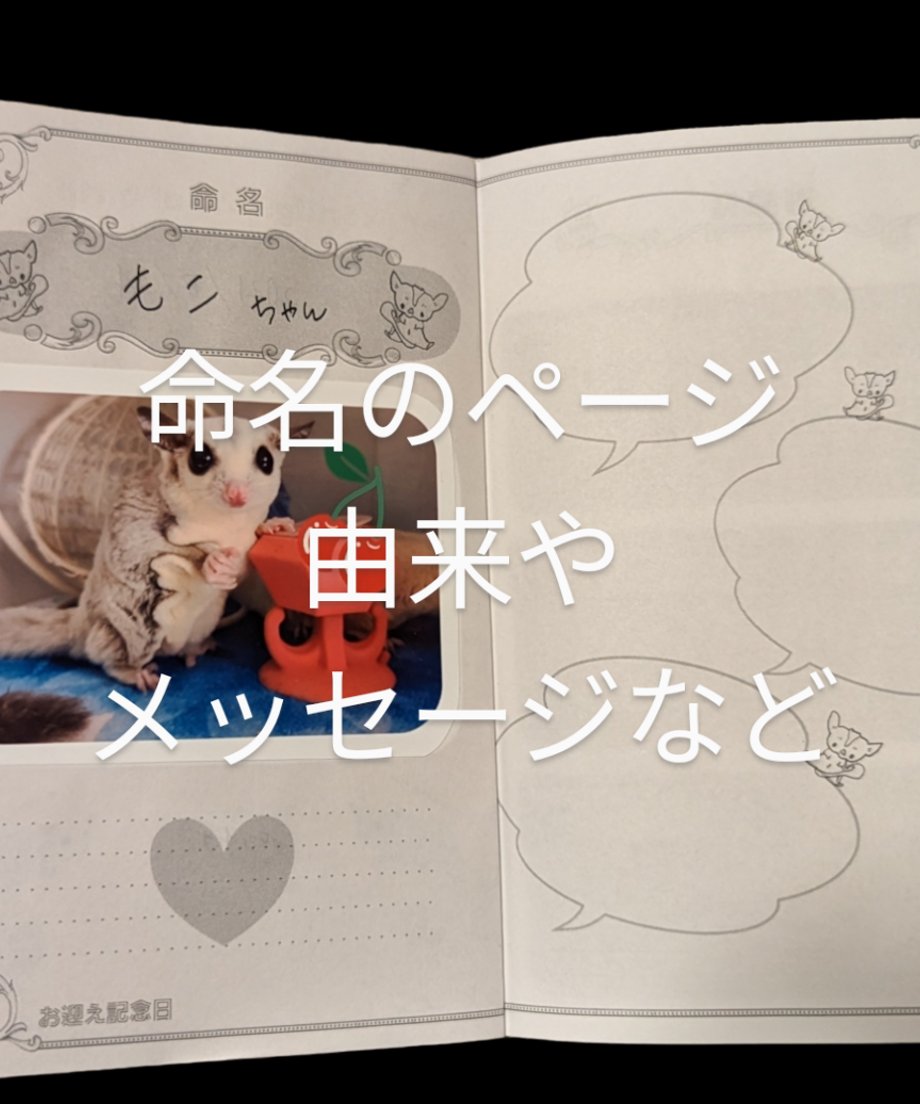 命名
モン ちゃん
命名のページ
由来や
メッセージなど
お迎え記念日